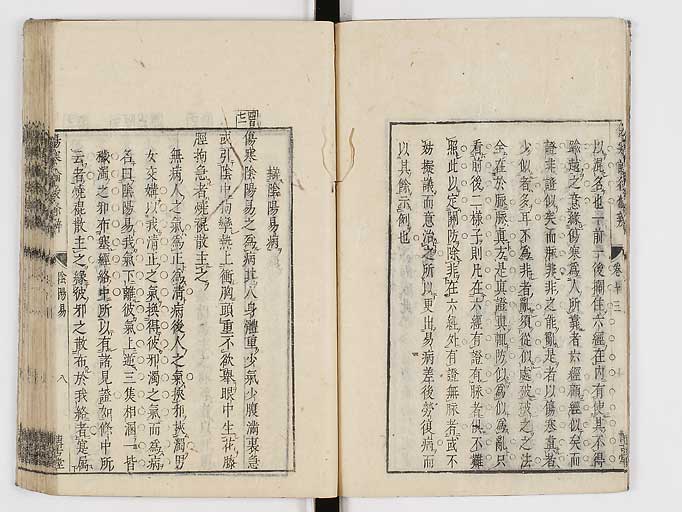 以混名也一前一後攔住六經在内有使其不得
踰越之意緣傷寒爲人所靠者六經顧經似矣而
證非證似矣而脈非脈非之能亂是者以傷寒
少似者多耳不爲非者亂須從似處破破之之法
全在於脈脈眞方是眞證眞亂防似爲似爲亂只
看前後二樣子則凡在六經有證有脈者供不難
照此以定關防除非在六經外有證無脈者或不
妨擬議而意治之所以更出易病差後勞復病而
以其餘示例也
卷十三
辨陰陽易病
四百七一
傷寒陰陽易之爲病其人身體重少氣少腹滿裏急
或引陰中拘攣熱上衝胸頭重不欲舉眼中生花膝
脛拘急者燒裩散主之
無病人之氣爲正爲淸病後人之氣爲邪爲濁男
女交媾以我淸正之氣換得彼邪濁之氣而爲病
名曰陰陽易我氣下離彼氣上逆三焦相溷一皆
穢濁之邪布塞經絡中所以有諸見證如條中所
云者燒裩散主之緣彼邪之散布於我絡者寔屬
陰陽易
八